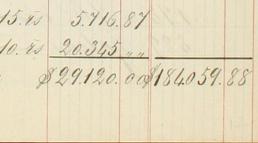 15. rs 5.716.87
10. rs 20.345 „ „
$29.120.00 $184059.88